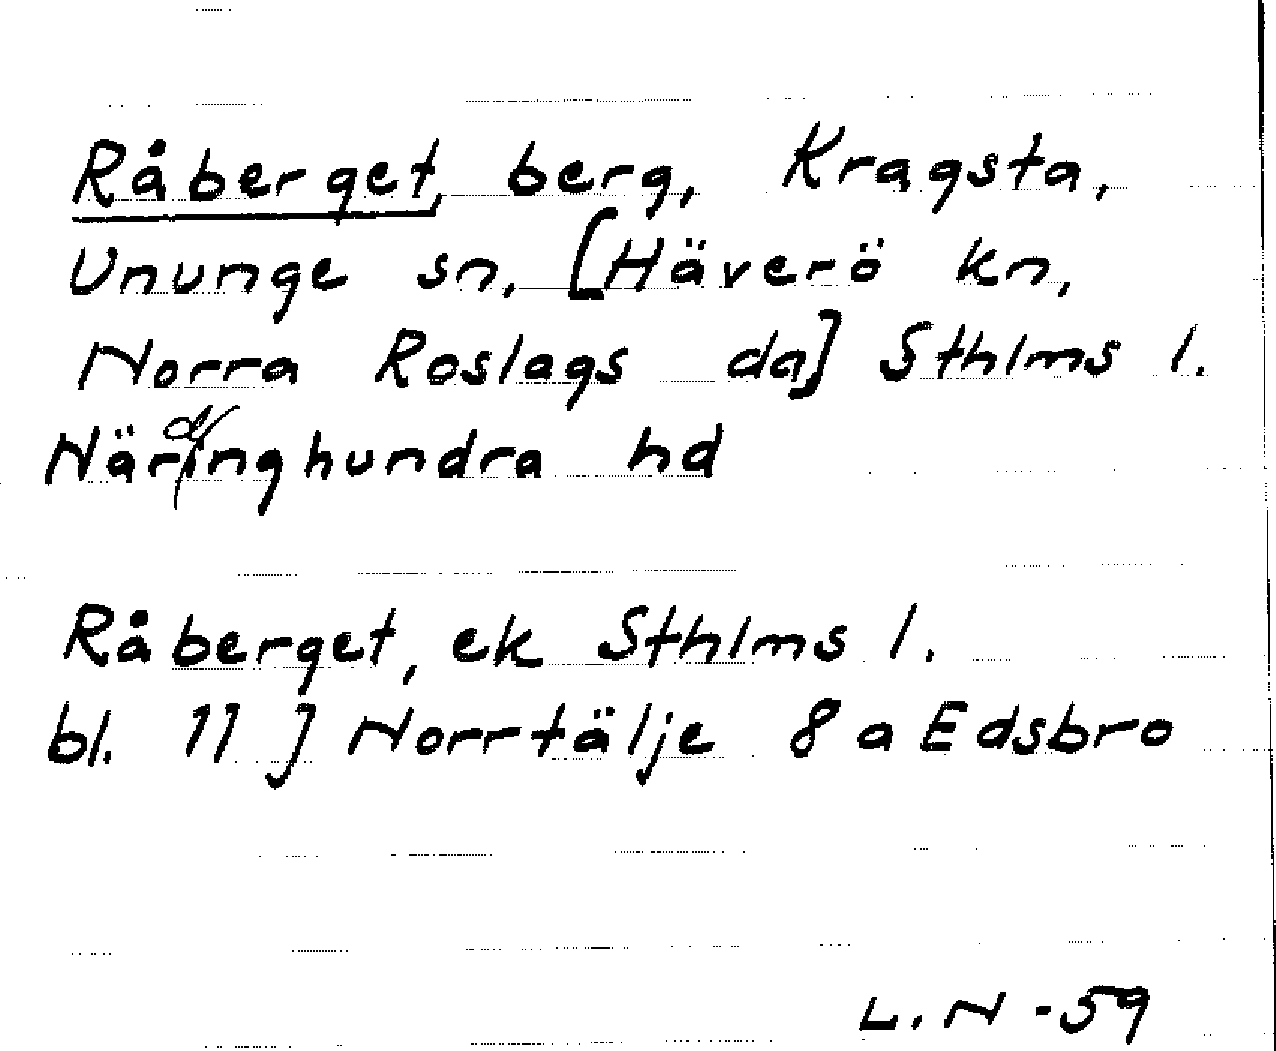 Råberget, berg, Kragsta,
Ununge sn, [Häverö kn,
Norra Roslags da] Sthlms l.
Närdinghundra hd
Råberget, ek Sthlms l.
bl. 11 J Norrtälje 8 a Edsbro
L. N -59